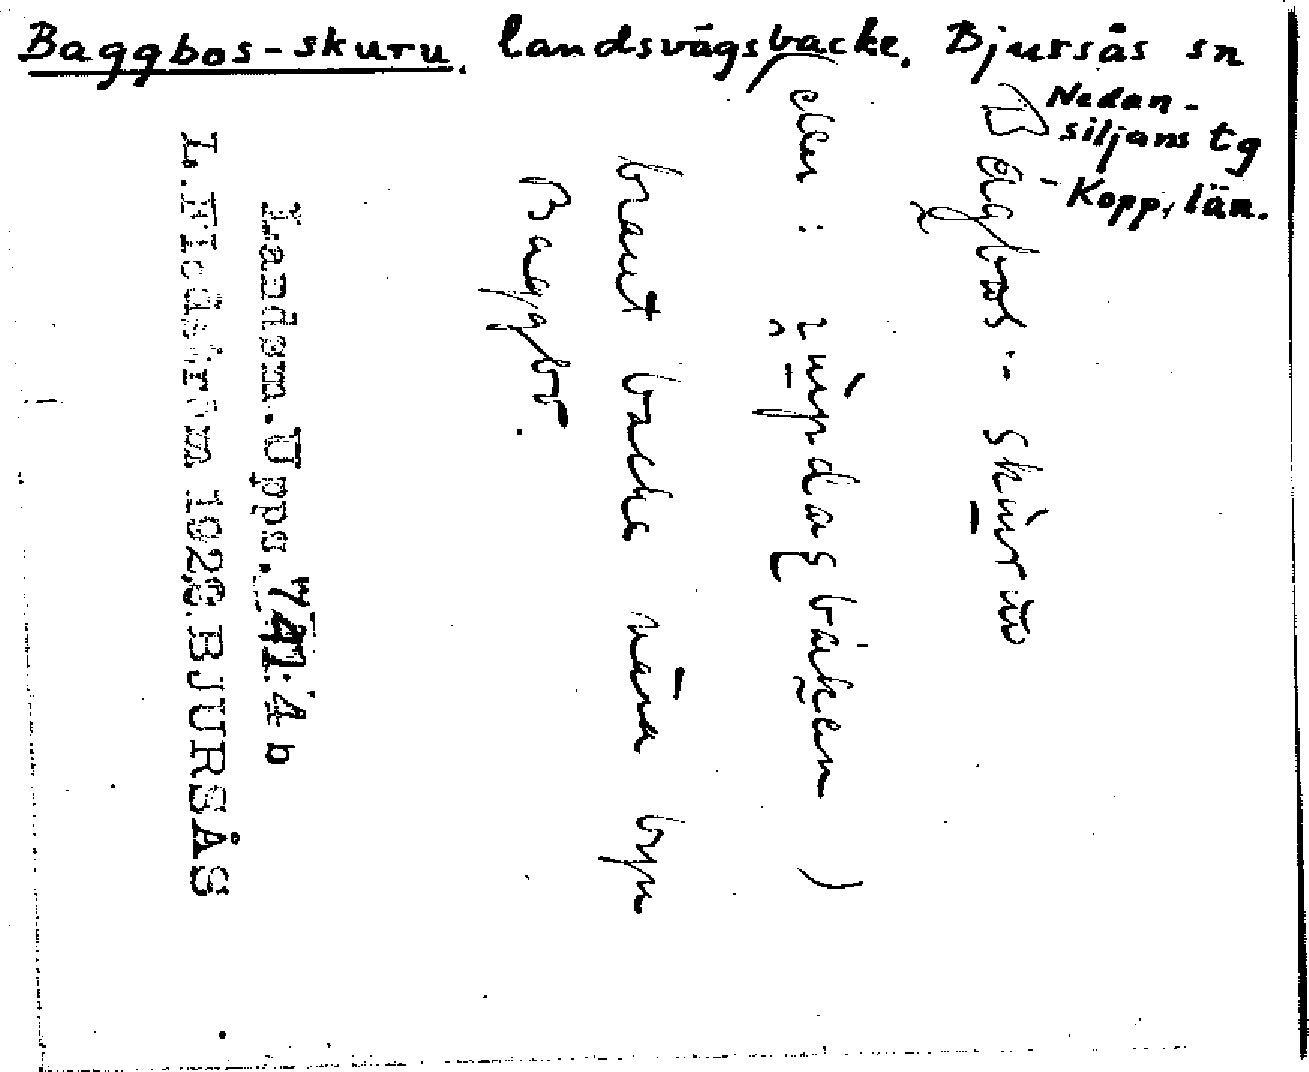 Baggbos-skuru. landsvägsbacke. Bjursås sn
Nedan-
siljans tg
Kopp. län.
Bagbos-skuru
eller :
brant backe nära byn
Baggbo.
Landsm. Upps. 741:4 b
L. Hedström 1928. BJURSÅS